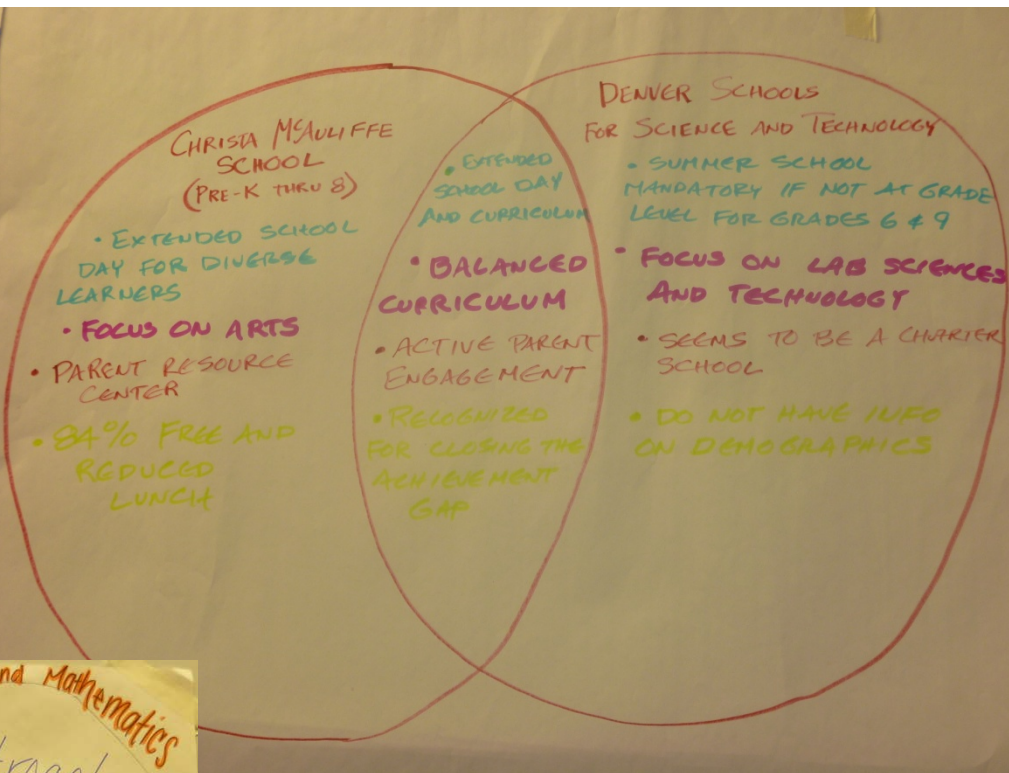 CHRISTA MCAULIFFE
SCHOOL
(PRE-K THRU 8)
• EXTENDED SCHOOL
DAY FOR DIVERSE
LEARNERS
• FOCUS ON ARTS
• PARENT RESOURCE
CENTER
• 84% FREE AND
REDUCED
LUNCH
• EXTENDED
SCHOOL DAY
AND CURRICULUM
• BALANCED
CURRICULUM
• ACTIVE PARENT
ENGAGEMENT
• RECOGNIZED
FOR CLOSING THE
ACHIEVEMENT
GAP
DENVER SCHOOLS
FOR SCIENCE AND TECHNOLOGY
• SUMMER SCHOOL
MANDATORY IF NOT AT GRADE
LEVEL FOR GRADES 6 & 9
• FOCUS ON LAB SCIENCES
AND TECHNOLOGY
• SEEMS TO BE A CHARTER
SCHOOL
• DO NOT HAVE INFO
ON DEMOGRAPHICS
Mathematics